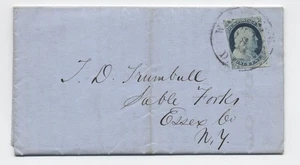 J. D. Trumbull
Sable Forks
Essex Co
N.Y.